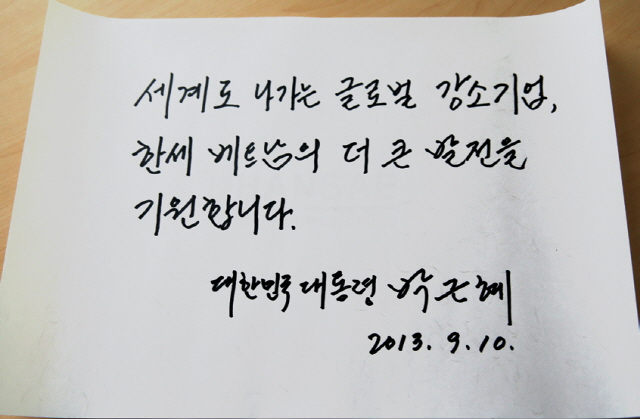 세계로 나가는 글로벌 강소기업,
한세 베트남의 더 큰 발전을
기원합니다.
대한민국 대통령 박근혜
2013. 9. 10.